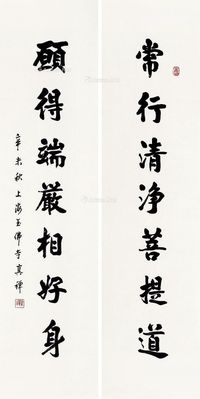 常行清净菩提道
願得端嚴相好身
辛未秋上海玉佛寺真禅